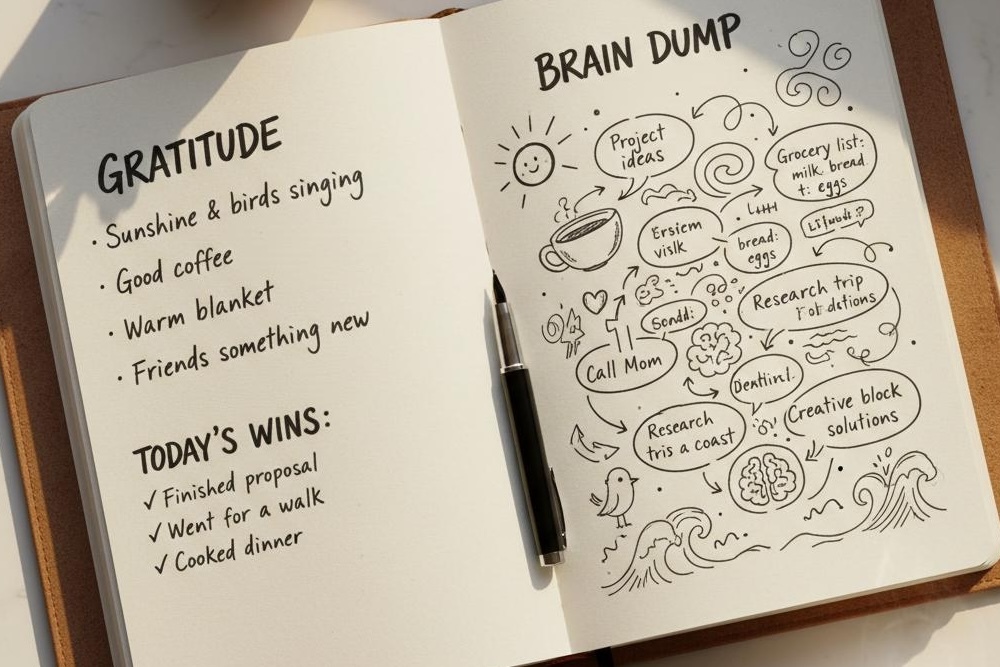 GRATITUDE
· Sunshine & birds singing
· Good coffee
· Warm blanket
· Friends something new
TODAY'S WINS:
✓ Finished proposal
✓ Went for a walk
✓ Cooked dinner
BRAIN DUMP
Project
ideas
Grocery list:
milk, bread
t: eggs
Ersiem
vislk
bread:
eggs
Research trip
Call Mom
Research
tris a coast
Creative block
solutions